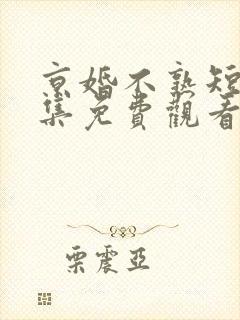 京婚不熟短
集免費觀看
栗震亞